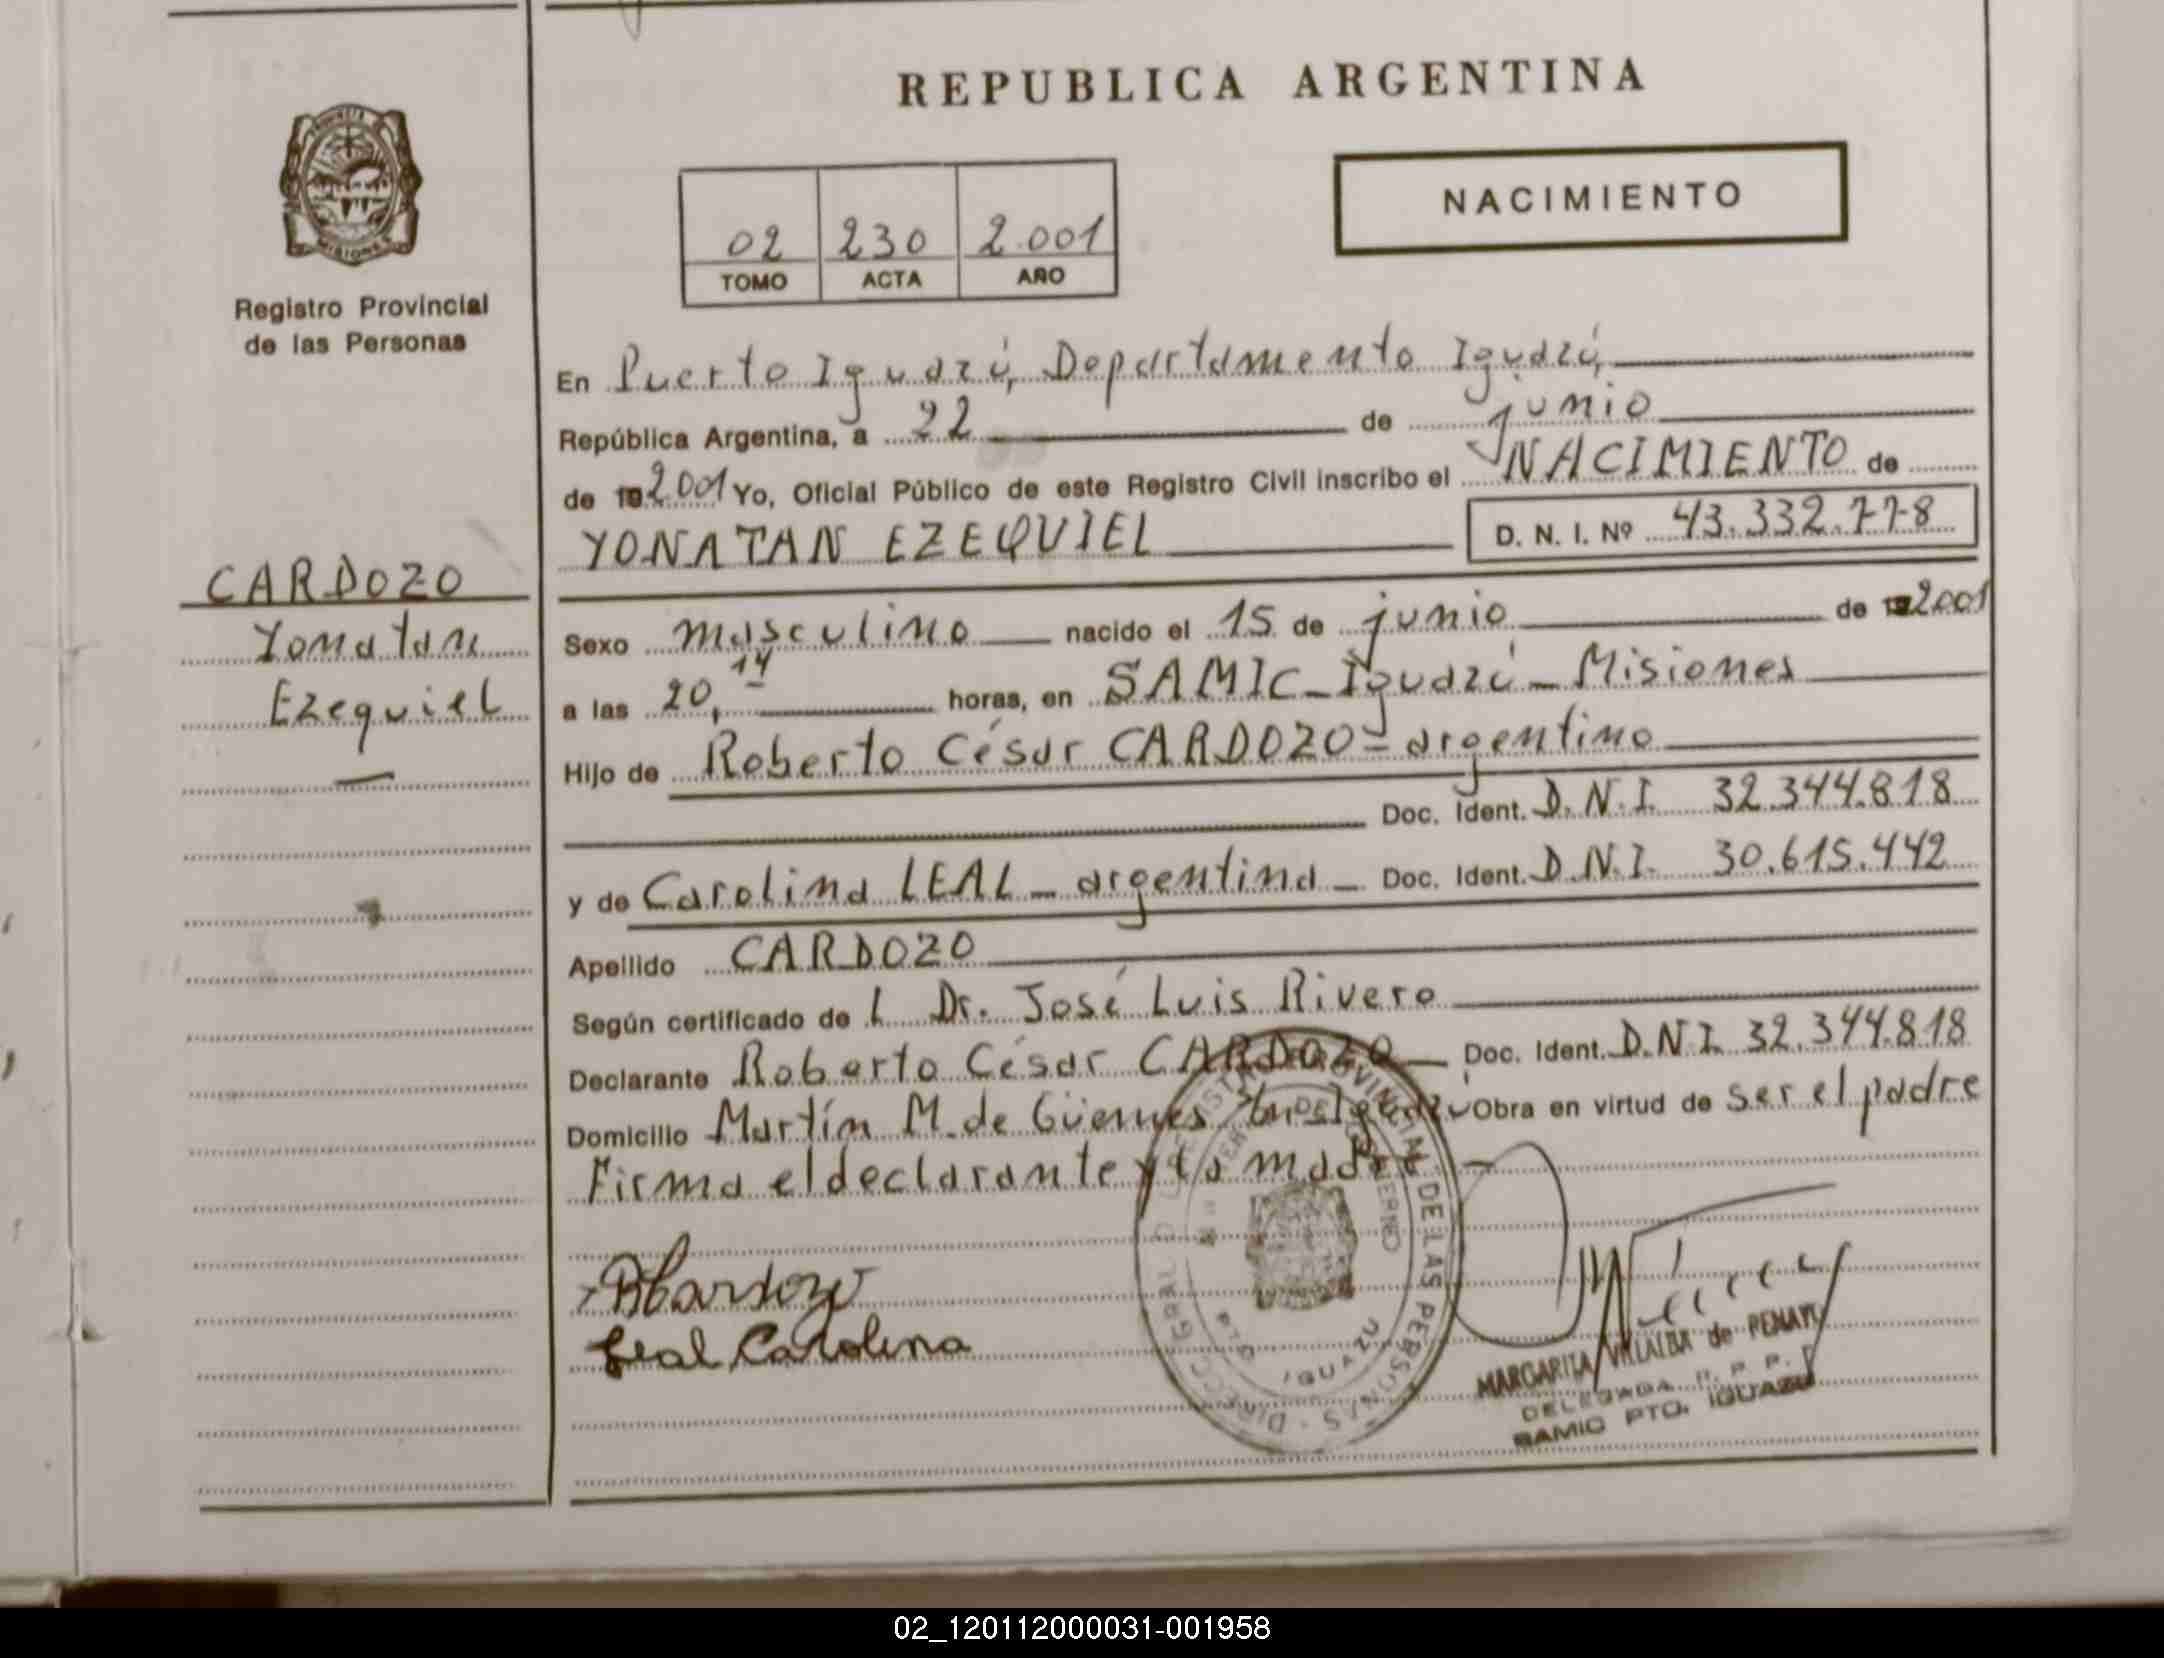 REPUBLICA ARGENTINA
NACIMIENTO
02 230 2.001
TOMO ACTA AÑO
PROVINCIA
MISIONES
Registro Provincial
de las Personas
CARDOZO
Yonatan
Ezequiel
En Puerto Iguazú, Departamento Iguazú,
República Argentina, a 22 de junio
de 2.001 Yo, Oficial Público de este Registro Civil inscribo el NACIMIENTO de
YONATAN EZEQUIEL D. N. I. Nº 43.332.778
Sexo masculino nacido el 15 de junio de 2.001
a las 20,14 horas, en SAMIC - Iguazú - Misiones
Hijo de Roberto César CARDOZO - argentino
Doc. Ident. D.N.I. 32.344.818
y de Carolina LEAL - argentina - Doc. Ident. D.N.I. 30.615.442
Apellido CARDOZO
Según certificado de l Dr. José Luis Rivero
Declarante Roberto César CARDOZO Doc. Ident. D.N.I. 32.344.818
Domicilio Martín M. de Güemes Iguazú Obra en virtud de ser el padre
Firma el declarante y la madre
RCardozo
Leal Carolina
DIRECC. GRAL. REGISTRO PROVINCIAL DE LAS PERSONAS
IGUAZU
MARGARITA VILLALBA de PENAYO
DELEGADA R. P. P.
SAMIC PTO. IGUAZU
02_120112000031-001958